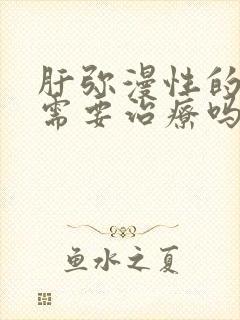 肝弥漫性的
需要治疗吗
鱼水之夏